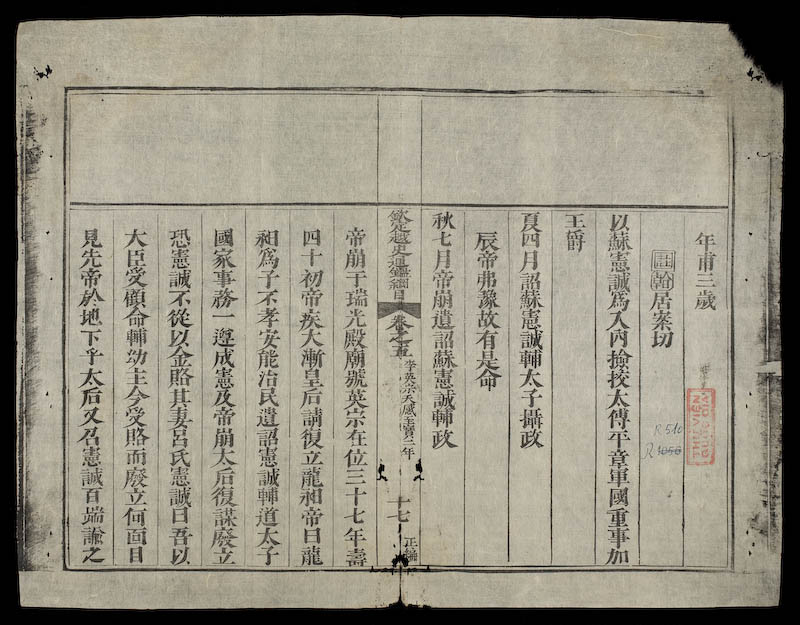 年甫三歲
註 䎐居案切
以蘇憲誠爲入內撿挍太傅平章軍國重事加
王爵
夏四月詔蘇憲誠輔太子攝政
辰帝弗豫故有是命
秋七月帝崩遺詔蘇憲誠輔政
欽定越史通鑑綱目 卷之五 李英宗天感至寶二年 十七 正編
帝崩于瑞光殿廟號英宗在位三十七年壽
四十初帝疾大漸皇后請復立龍昶帝曰龍
昶爲子不孝安能治民遺詔憲誠輔道太子
國家事務一遵成憲及帝崩太后復謀廢立
恐憲誠不從以金賂其妻呂氏憲誠曰吾以
大臣受顧命輔幼主今受賂而廢立何面目
見先帝於地下乎太后又召憲誠百端諭之
R.510
R.1050